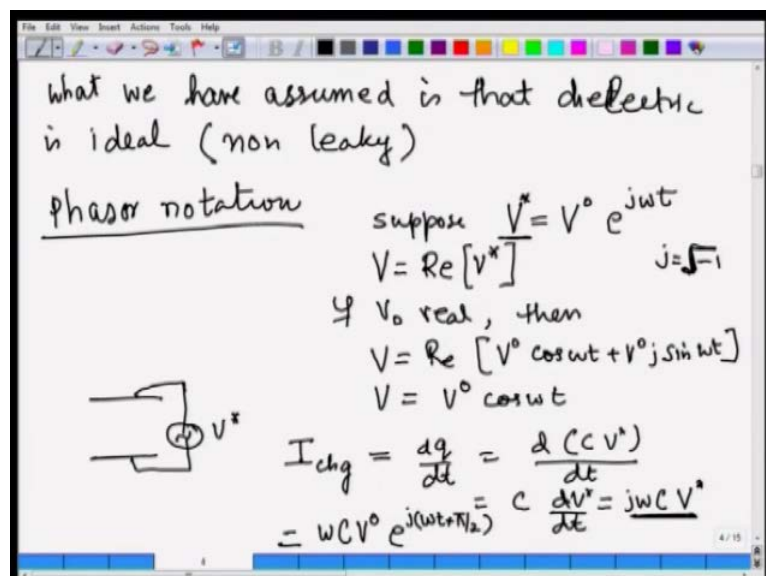 File Edit View Insert Actions Tools Help
B I
what we have assumed is that dielectric
is ideal (non leaky)
Phasor notation
suppose V* = V° e^{jωt}
V = Re [V*]    j = √-1
If V₀ real, then
V = Re [V° cosωt + V° j sin ωt]
V = V° cosωt
V*
I_chg = dq/dt = d(CV*)/dt
= C dV*/dt = jωC V*
= ωCV° e^{j(ωt+π/2)}
4/15
4